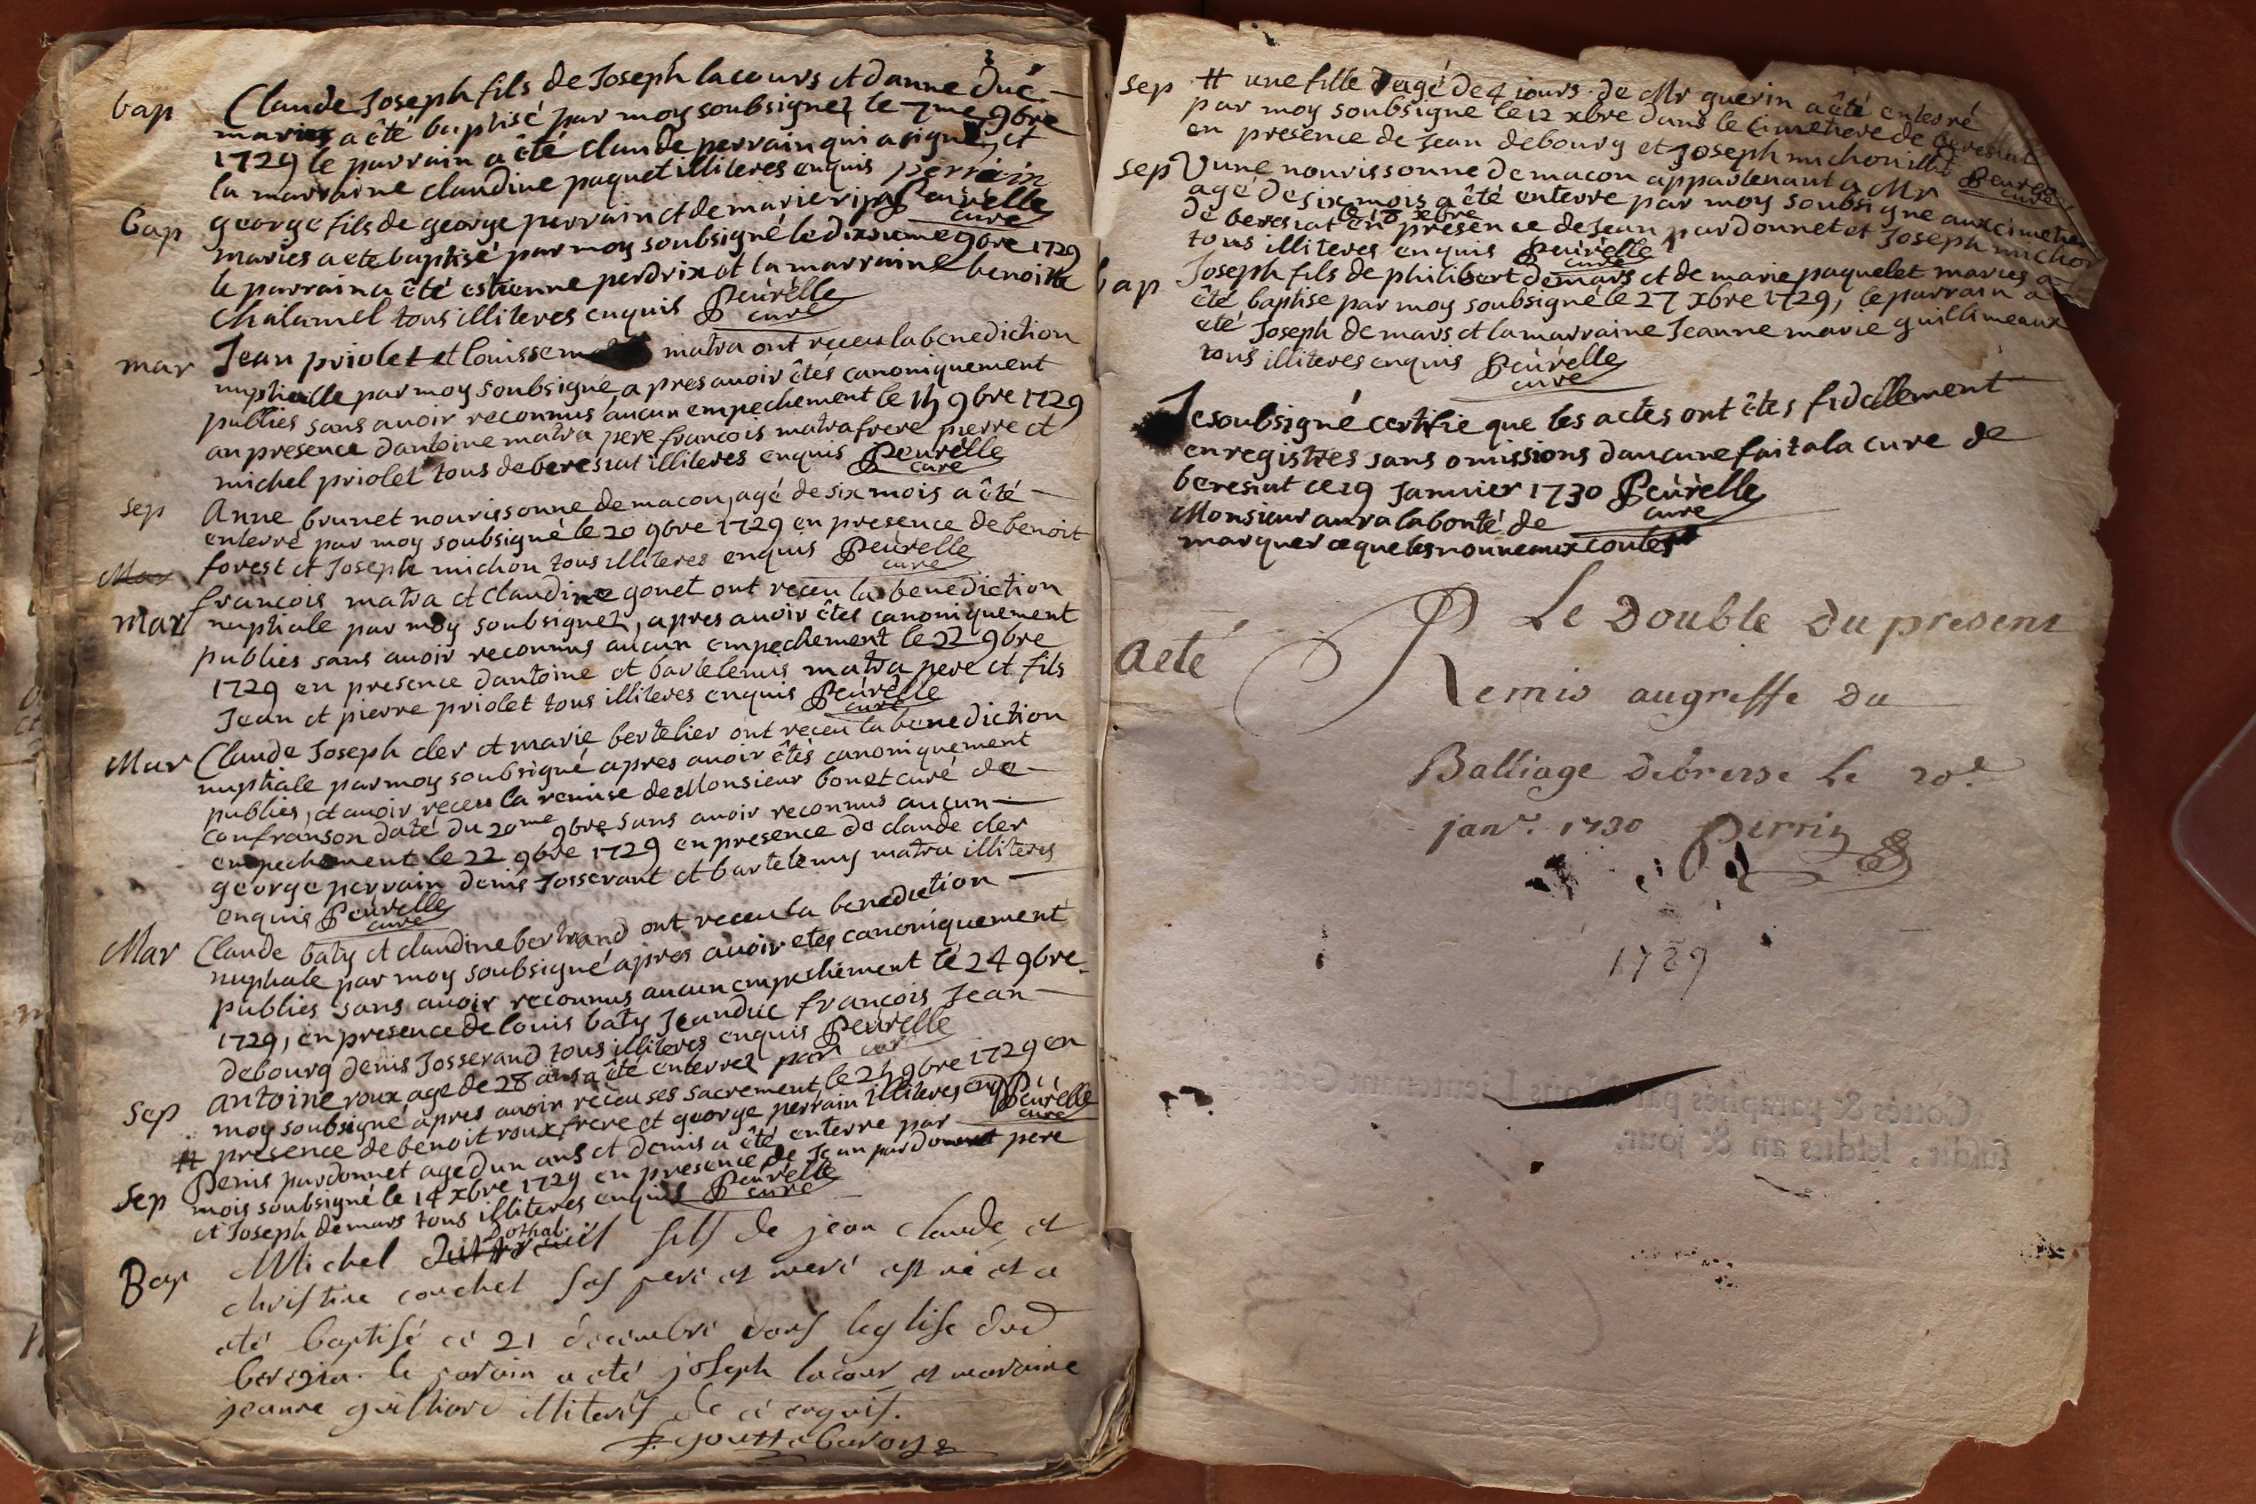 bap Claude Joseph fils de Joseph lacours et danne duc
mariez a êté baptisé par moy soubsignez le 7me 9bre
1729 le parrain a êté claude perrain qui a signez et
la marraine claudine paquet illiteres enquis perrain
Peurelle curé
bap george fils de george perrain et de marie
maries a ete baptisé par moy soubsigné le dixsieme 9bre 1729
le parrain a êté estienne perdrix et la marraine benoitte
chalamel tous illiteres enquis Peurelle curé
mar Jean priolet et louisse matra ont receu la benediction
nuptialle par moy soubsigné, apres avoir êtés canoniquement
publies sans avoir reconnus aucun empechement le 15 9bre 1729
an presence dantoine matra pere francois matra frere pierre et
michel priolet tous de beresiat illiteres enquis Peurelle curé
sep Anne brunet nourissonne de macon, agé de six mois a êté
enterré par moy soubsigné le 20 9bre 1729 en presence de benoit
forest et Joseph michon tous illiteres enquis Peurelle curé
Mar
mar francois matra et claudine gonet ont receu la benediction
nuptiale par moy soubsignez, apres avoir êtes canoniquement
publies sans avoir reconnus aucun empechement le 22 9bre
1729 en presence dantoine et bartelemis matra pere et fils
Jean et pierre priolet tous illiteres enquis Peurelle curé
Mar Claude Joseph cler et marie bertelier ont receu la benediction
nuptiale par moy soubsigné apres avoir êtés canoniquement
publies, et avoir receu la remise de Monsieur bonet curé de
confranson daté du 20me 9bre sans avoir reconnus aucun
empechement le 22 9bre 1729 en presence de claude cler
george perrain denis Josserant et bartelemy matra illiteres
enquis Peurelle curé
Mar Claude baty et claudine bertrand ont receu la benediction
nuptiale par moy soubsigné apres avoir etes canoniquement
publies sans avoir reconnus aucun empechement le 24 9bre
1729, en presence de louis baty Jean duc francois Jean
debourg denis Josserand tous illiteres enquis Peurelle curé
sep antoine roux agé de 28 ans a êté enterrez par
moy soubsigné apres avoir receu ses sacrement le 25 9bre 1729 en
# presence de benoit roux frere et george perrain illiteres enquis Peurelle curé
sep Denis pardonnet age dun ans et demis a êté enterre par
mois soubsigné le 14 xbre 1729 en presence de Jean pardonnet pere
et Joseph demars tous illiteres enquis Peurelle curé
Bap Michel fils de jean claude et
christine couchet ses pere et mere est né et a
eté baptisé ce 21 decembre dans leglise dud
beregia. le parain a eté joseph lacour et maraine
jeanne guilliard illiterés de ce enquis.
sep # une fille agé de 4 jours de Mr guerin a êté enterré
par moy soubsigne le 12 xbre dans le cimetiere de beresiat
en presence de Jean debourg et Joseph michon illit Peurelle curé
sep Vune nourissonne de macon appartenant a Mr
agé de six mois a êté enterre par moy soubsigne aux cimetiere
de beresiat le 18 xbre en presence de Jean pardonnet et Joseph michon
tous illiteres enquis Peurelle curé
bap Joseph fils de philibert demars et de marie paquelet maries a
êté baptise par moy soubsigné le 27 xbre 1729, le parrain a
eté Joseph demars et la marraine Jeanne marie guillimeaux
tous illiteres enquis Peurelle curé
Je soubsigné certifie que les actes ont êtes fidellement
enregistres sans omissions daucune fait a la cure de
beresiat ce 19 Janvier 1730 Peurelle curé
Monsieur aura la bonté de
marquer ce que les nouveaux coutes
Le Double du present
acté Remis au greffe du
Balliage debresse le 20e
janv. 1730 Perrin
1729
Cottés & paraphés par Nous Lieutenant Gen.
susdit, lesdits an & jour.